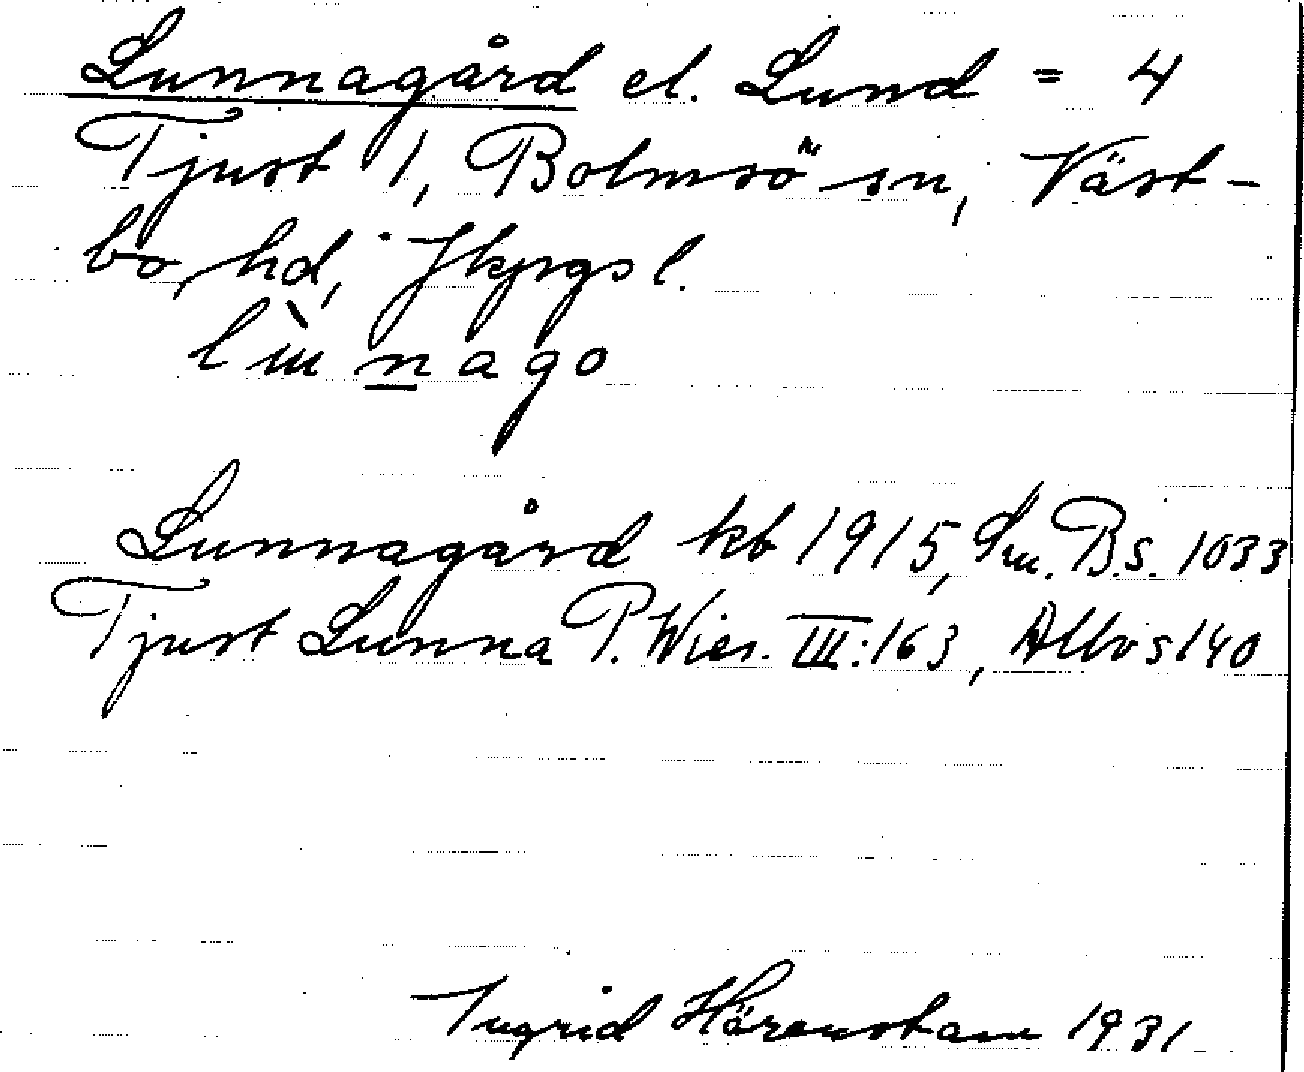 Lunnagård el. Lund = 4
Tjust 1, Bolmsö sn, Väst-
bo hd, Jkpgs l.
lùnago
Lunnagård kb 1915, Sm. B.s. 1033
Tjust Lunna P. Wies. III:163, Allbo s 140
Ingrid Härenstam 1931